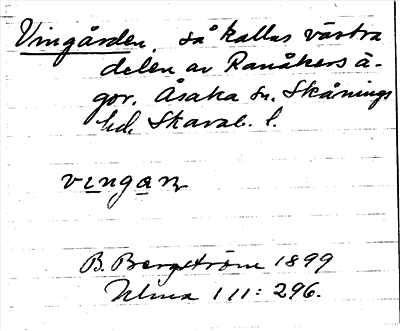 Vingården, så kallas västra
delen av Ranåkers ä-
gor. Åsaka sn. Skånings
hd. Skarab. l.
vingaɲ
B. Bergström 1899
Ulma 111: 296.